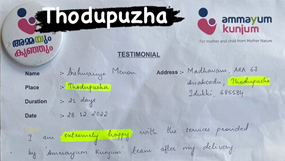 Thodupuzha
അമ്മയും
കുഞ്ഞും
ammayum
kunjum
For mother and child from Mother Nature
TESTIMONIAL
Name : Aishwarya Menon
Address : Madhavam, ARA 63
Place : Thodupuzha
Thodupuzha
Duration : 25 days
Idukki 685584
Date : 28.12.2022
I am extremely happy with the services provided
by Ammayum Kunjum team after my delivery